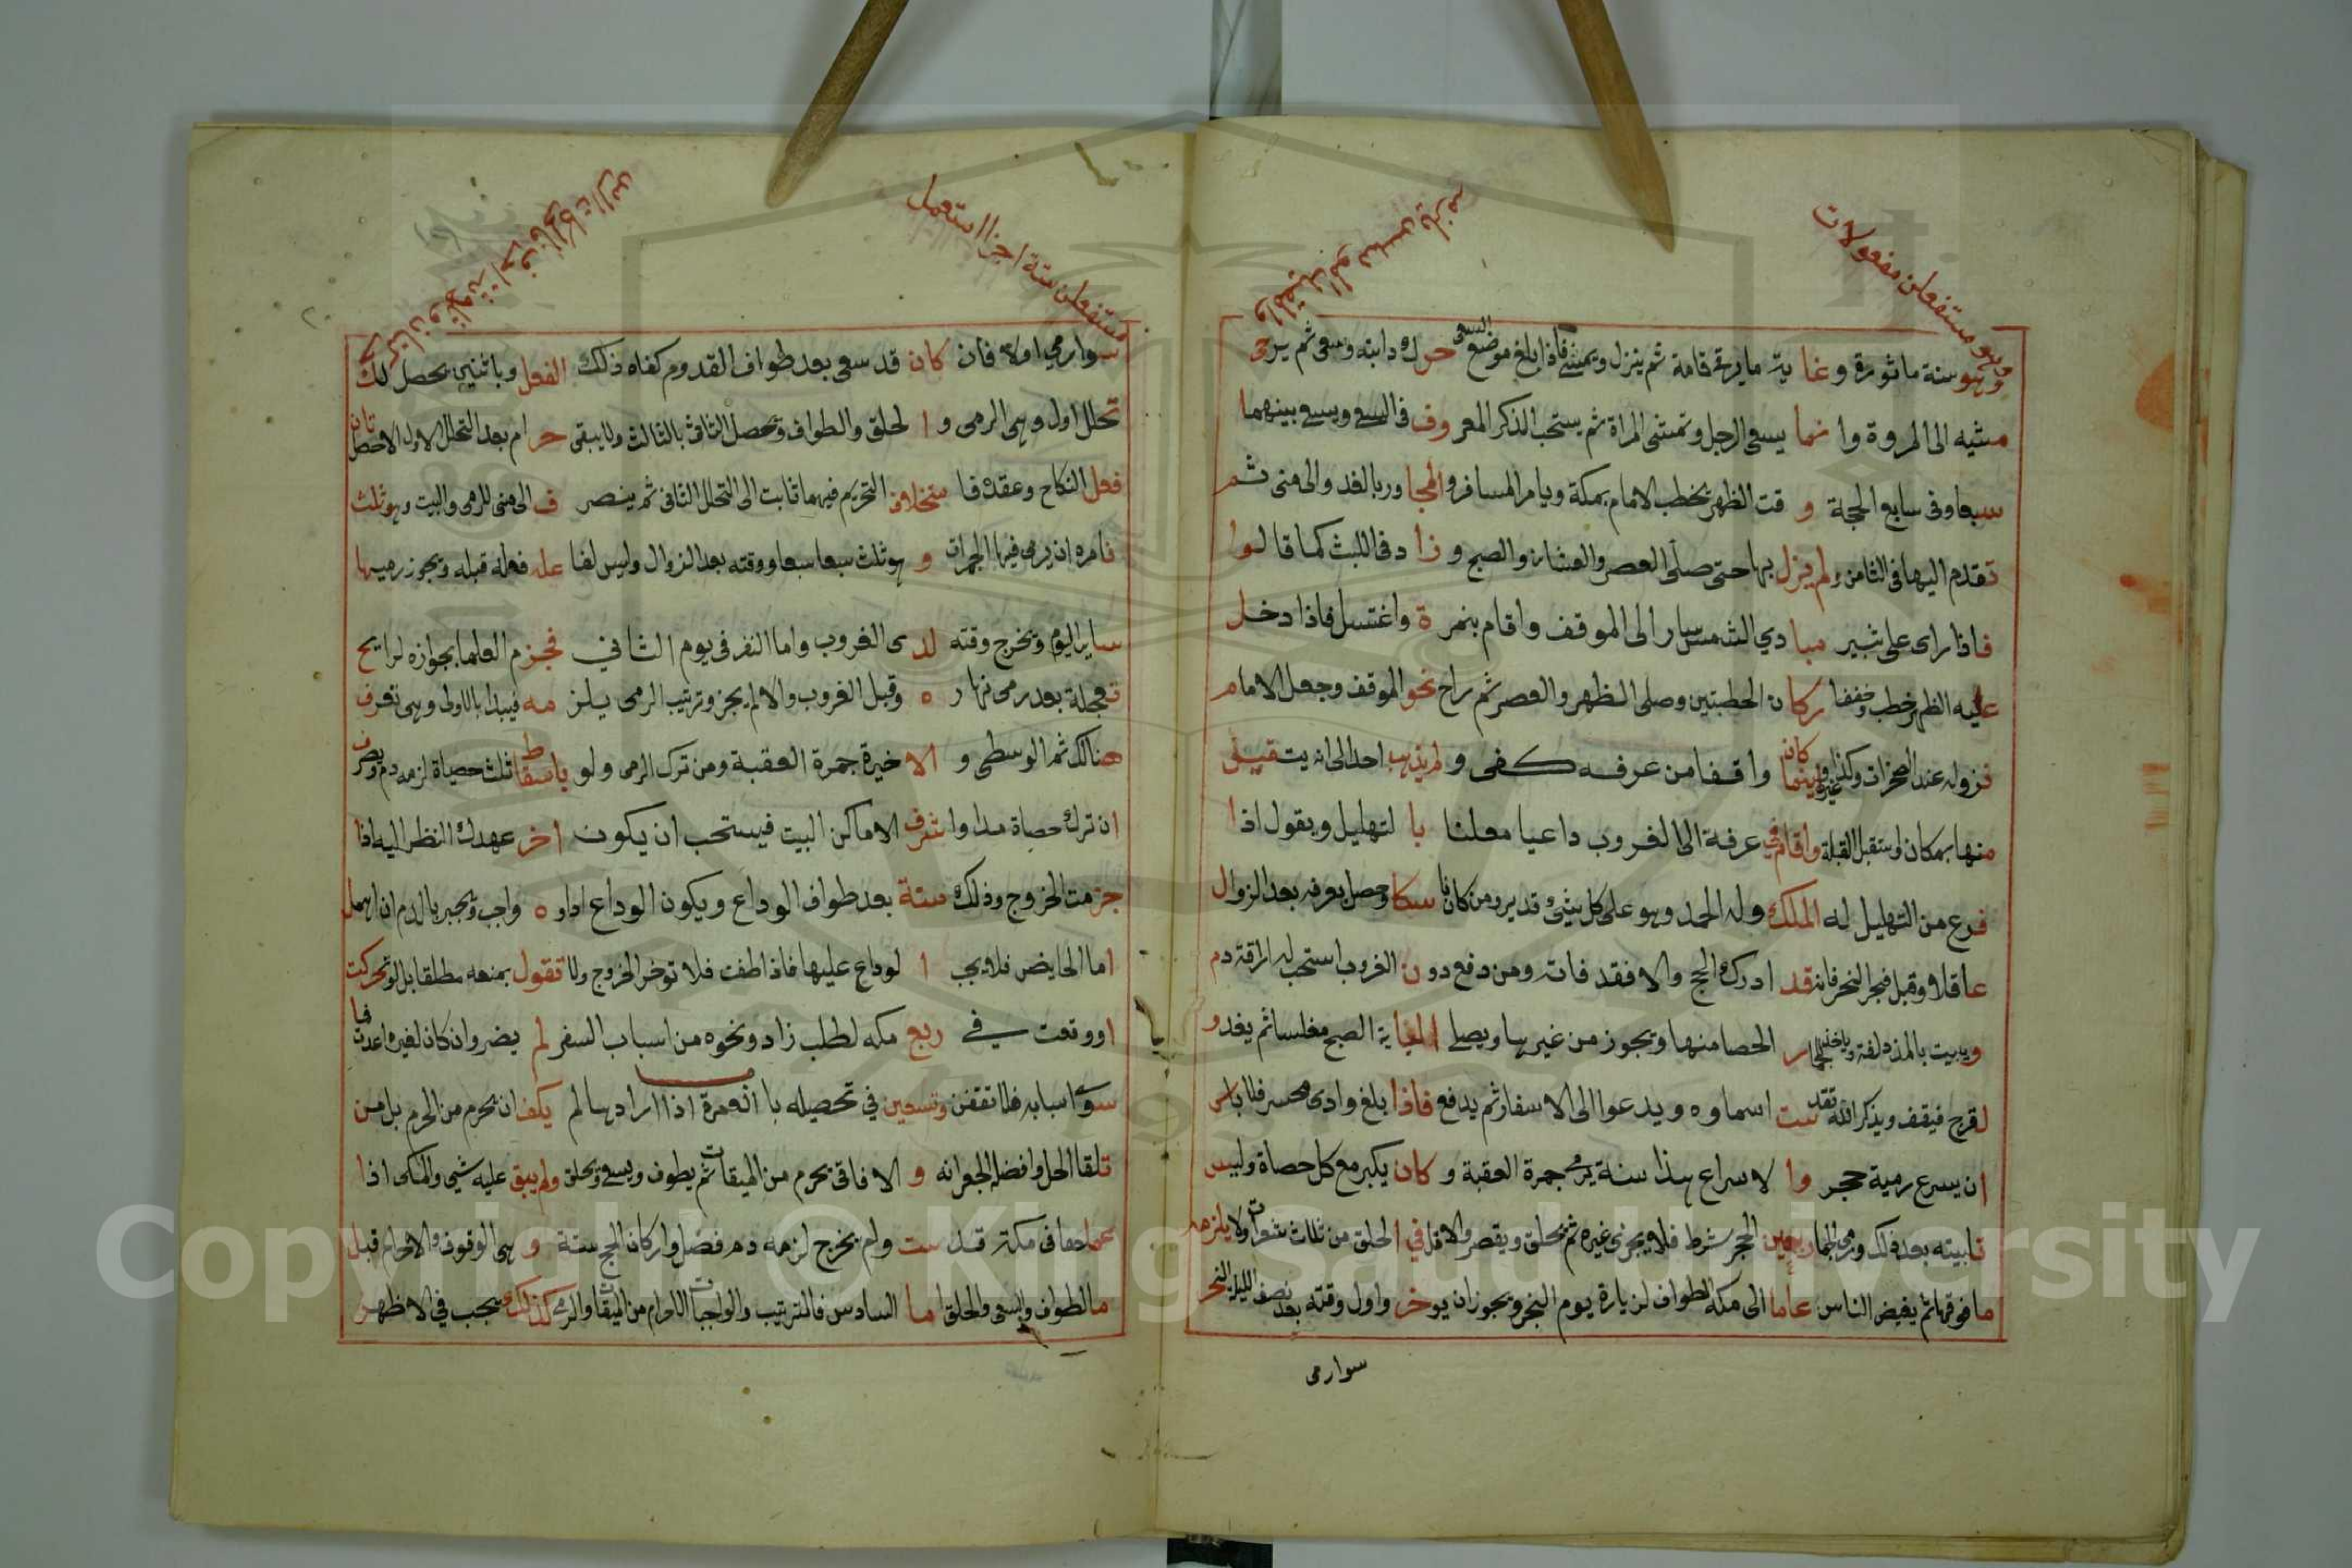 وهو مستفعلن مفعولات
وهو سنة ماثورة وغاية ما يرقي قامة ثم ينزل ويمشي فاذا بلغ موضع السعي حرك دابته وسعى ثم يرجى
مشيه الى المروة وانما يسعى الرجل وتمشى المراة ثم يستحب الذكر المعروف في السعي ويسعى بينهما
سبعا وفى سابع الحجة وقت الظهر يخطب الامام بمكة ويامر المسافر والمجاور بالغد والى منى ثم
تقدم اليها فى الثامن ولم يزل بها حتى صلى العصر والعشاء والصبح وزاد فى اللبث كما قالوا
فاذا راى على ثبير مبادي الشمس سار الى الموقف واقام بنمرة واغتسل فاذا دخل
عليه الظهر خطب وخففا ركان الخطبتين وصلى الظهر والعصر ثم راح نحو الموقف وجعل الامام
نزوله عند الصخرات وكذا غيره واينما كان واقفا من عرفه كفى ولم يذهب احد الى انه يتقيى
منها بمكان واستقبل القبلة واقام في عرفة الى الغروب داعيا معلنا بالتهليل ويقول اذا
فرع من التهليل له الملك وله الحمد وهو على كل شيئ قدير ومن كان ناسكا وحصل بعرفه بعد الزوال
عاقلا وقبل فجر النحر فانه قد ادرك الحج والا فقد فاته ومن دفع دون الغروب استحب له اراقة دم
ويبيت بالمزدلفة وياخذ لجمار الحصا منها ويجوز من غيرها ويصلي الغاية الصبح مغلسا ثم يغدو
لقزح فيقف ويذكر الله تقدست اسماوه ويدعوا الى الاسفار ثم يدفع فاذا بلغ وادى محسر فلا باس
ان يسرع رمية حجر والاسراع هذا سنة يرمي جمرة العقبة وكان يكبر مع كل حصاة وليس
تلبيته بعد ذلك ورمى الجمار بعين الحجر شرط فلا يجزى غيره ثم يحلق ويقصر والاقل في الحلق من ثلاث شعرات ولا يلزمه
ما فوقها ثم يفيض الناس عاما الى مكة لطواف لزيارة يوم النحر ويجوز ان يوخر واول وقته بعد نصف الليل النحر
سوارمى
مستفعلن ستة اجزا استعمل
سوارمي اولا فان كان قد سعى بعد طواف القدوم كفاه ذلك الفعل وباثنين يحصل لك
تحلل اول وهى الرمى والحلق والطواف وتحصل الثانى بالثالث ولا يبقى حرام بعد التحلل الاول الاحصل تان
فعل النكاح وعقده فا متخلاف التحريم فيهما ثابت الى التحلل الثانى ثم ينصرف الى منى للرمى والبيت وهو ثلث
نامره ان يرمى فيها الجمرات وهو ثلث سبعا سبعا ووقته بعد الزوال وليس لفاعله فعله قبله ويجوز رميها
ساير اليوم ويخرج وقته لدى الغروب واما النفر فى يوم الثاني فجزم العلما بجوازه لرايح
تعجلة بعد رمى نهاره وقبل الغروب والا لم يجز وترتيب الرمى يلزمه فيبدا بالاولى وهى تعرف
هنالك ثم الوسطى والاخيرة جمرة العقبة ومن ترك الرمى ولو باسقاط ثلث حصياة لزمه دم ويصرف
ان ترك حصاة مدا واشرف الاماكن البيت فيستحب ان يكون اخر عهدك النظر اليه اذا
جزمت الخروج وذلك ستة بعد طواف الوداع ويكون الوداع اداوه واجب ويجبر بالدم ان اهمل
اما الحايض فلا يجب الوداع عليها فاذا طفت فلا توخر الخروج ولا تقول بمنعه مطلقا بل لو تحركت
او وقعت في ربع مكه لطلب زاد ونحوه من اسباب السفر لم يضر وان كان لغيره اعدت فما
سوى اسبابه فلا تقفن وتسعين في تحصيله با العمرة اذا ارادها لم يكف ان يحرم من الحرم بل من
تلقا الحل وافضله الجعرانه والافاقى يحرم من الميقات ثم يطوف ويسعى ويحلق ولم يبق عليه شيى والمكى اذا
عملها فى مكة قد ست ولم يخرج لزمه دم فضل واركان الحج ستة وهى الوقوف والاحرام قبل
ما لطواف والسعى والحلق اما السادس فالترتيب والواجبات الاحرام من الميقات والرمى كذلك يجب في الاظهر